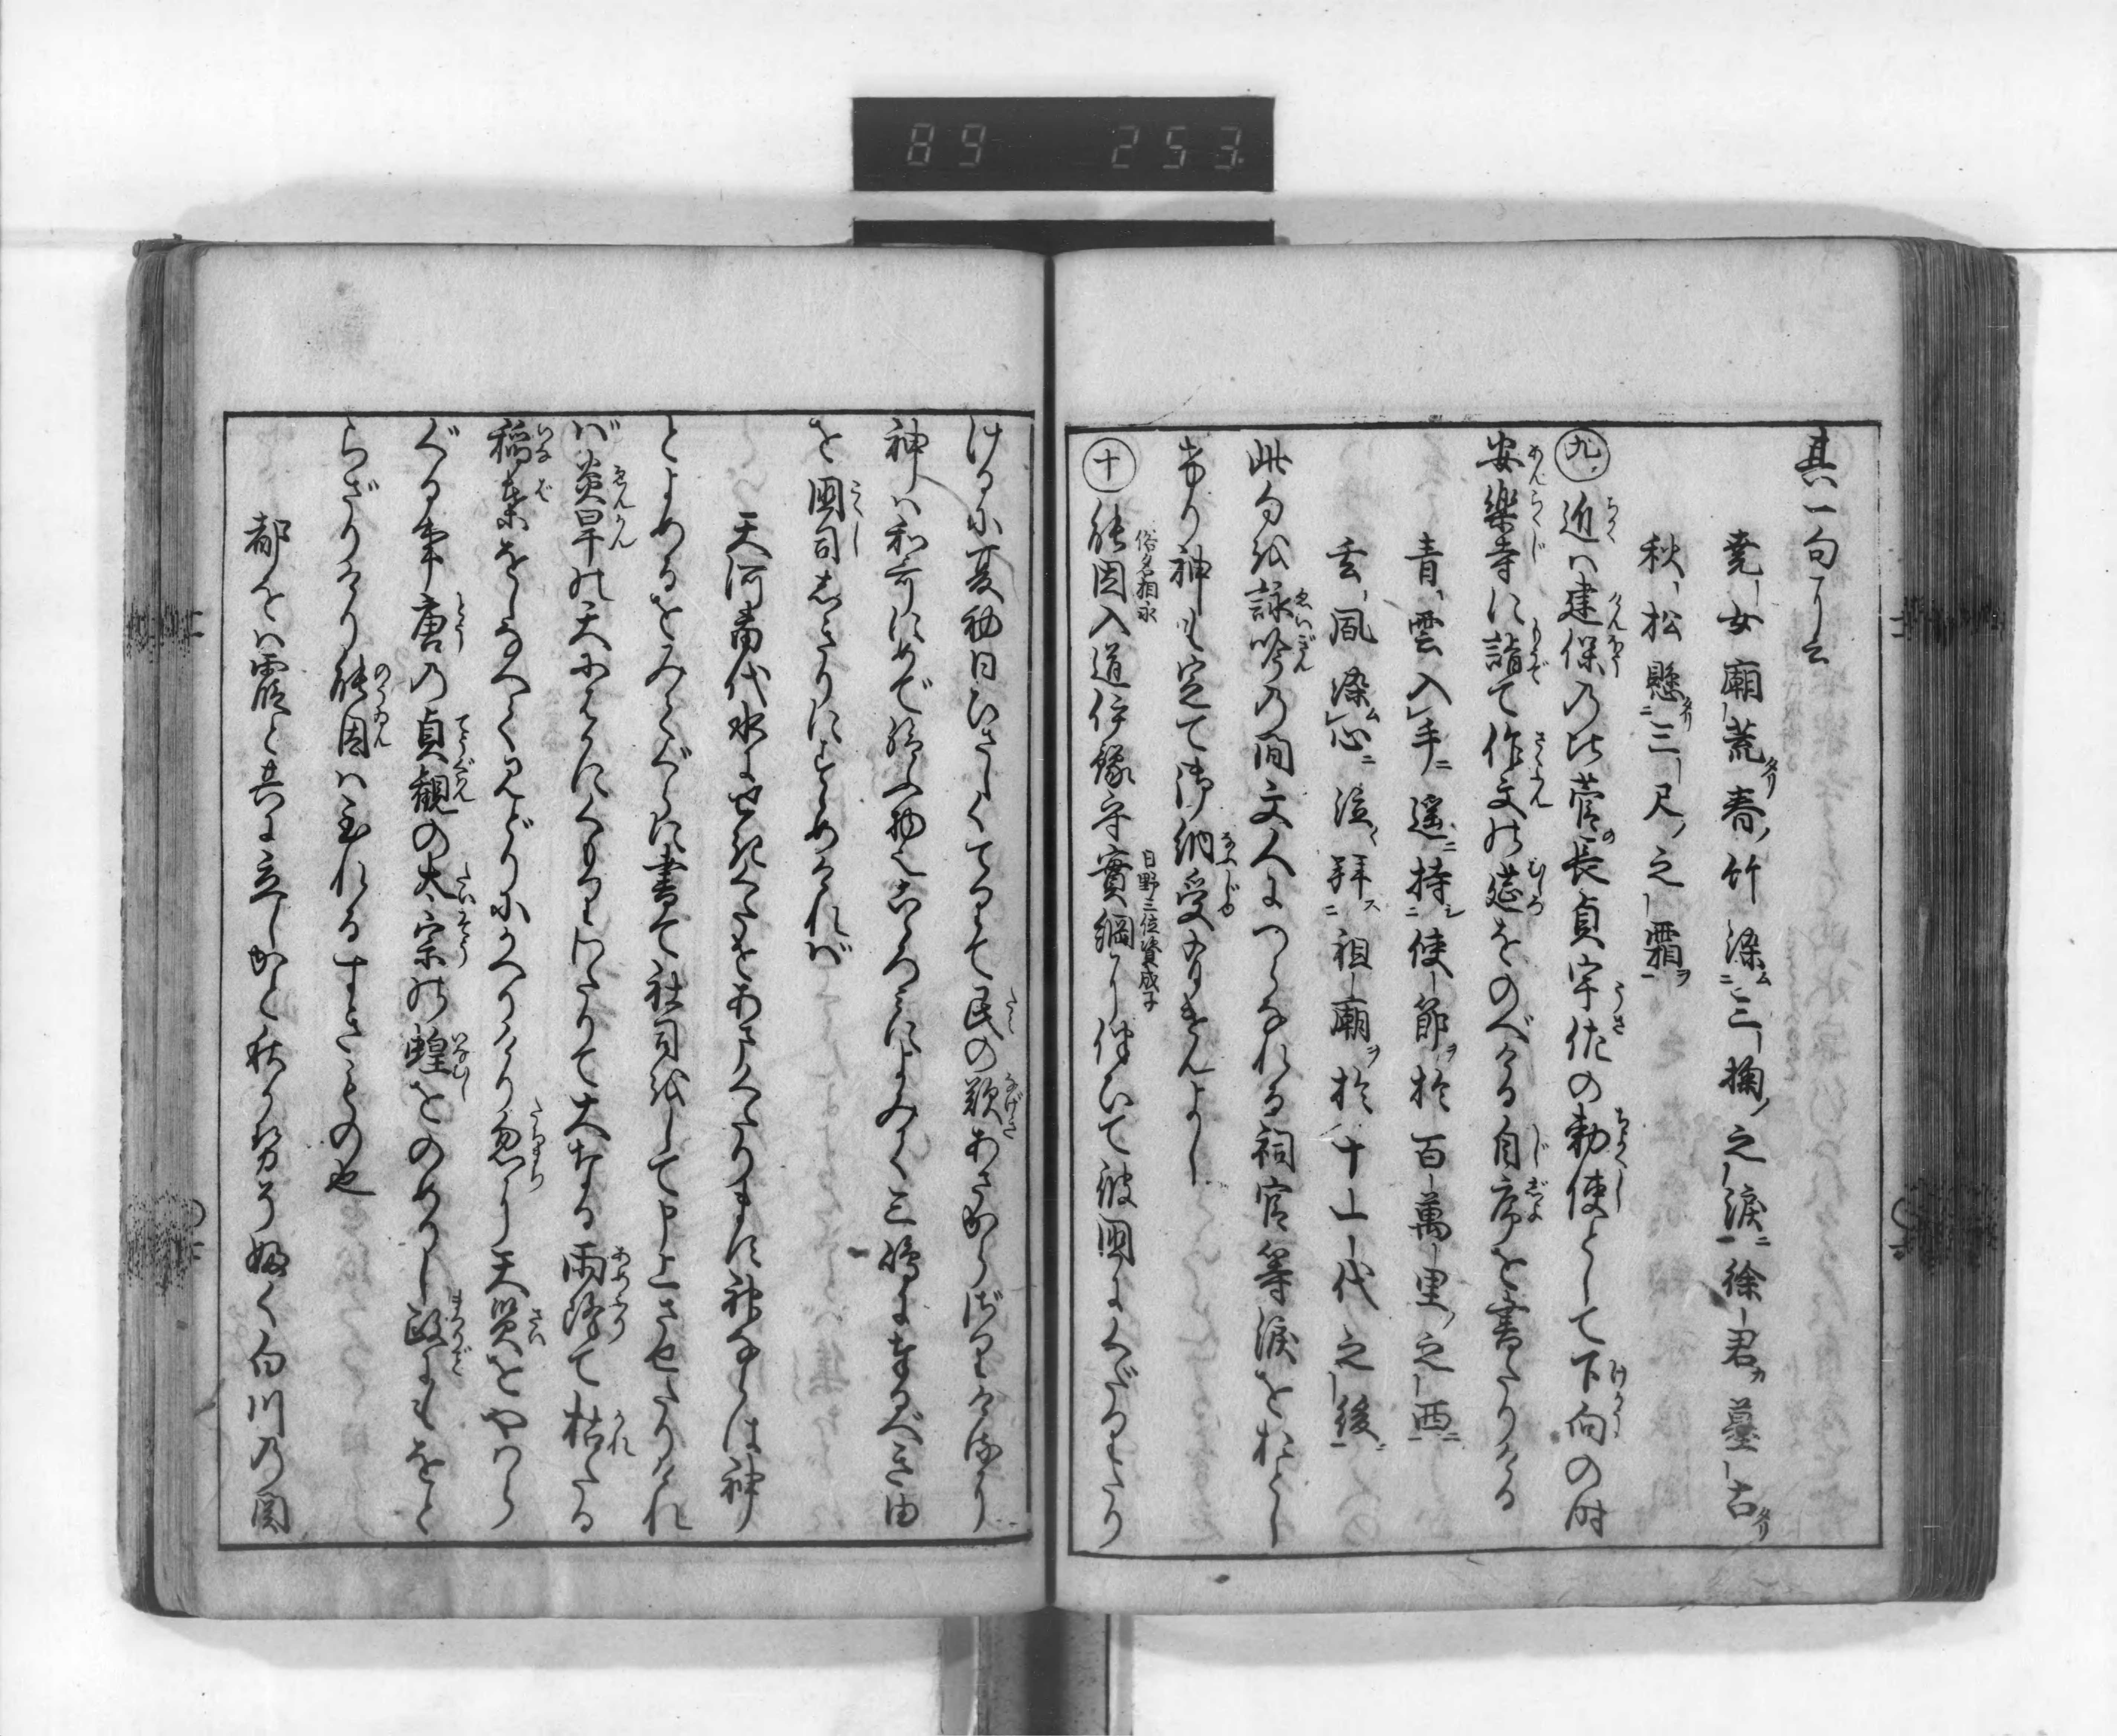 89 253
其一句に云
堯女廟荒春竹染三掬之涙徐君墓古
秋松懸三尺之霜
九 近くは建保の比菅長貞宇佐の勅使として下向の時
安樂寺に詣て作文の莚をのべける自序を書たりける
青雲入手遥持使節於百萬里之西
玄風染心泣拜祖廟於十一代之後
此句を詠吟の間文人につらなれる祠官等涙をおとし
けり神も定て御納受ありけんよし
十 能因入道伊豫守實綱に伴ひて彼國にくだりたり
俗名相永
日野三位資成子
けるに夏初日ひさしくてりて民の歎あさからざりけるに
神は和哥にめで給ふ物也こゝろみによみて三嶋に奉るべき由
を國司しきりにすゝめければ
天河苗代水にせきくだせあまくだります神ならは神
とよめるをみてぐらに書て社司をして申上させたりけれ
ば炎旱の天にはかにくもりわたりて大なる雨降て枯たる
稲葉をしなべてみどりにかへりけり忽に天災をやはら
ぐる事唐の貞観の太宗の蝗をのめりし政にもをと
らざりけり能因は至れるすきものも也
都をは霞と共に立しかと秋かせそ吹く白川の関